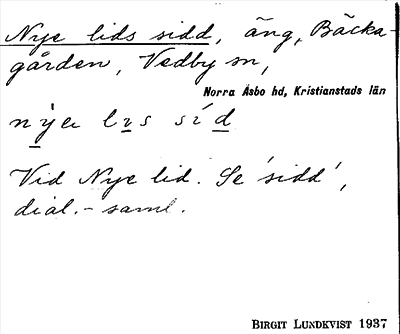 Nye lids sidd, äng, Bäcka-
gården, Vedby sn,
Norra Åsbo hd, Kristianstads län
nye lıs síd
Vid Nye lid. Se 'sidd',
dial.-saml.
BIRGIT LUNDKVIST 1937